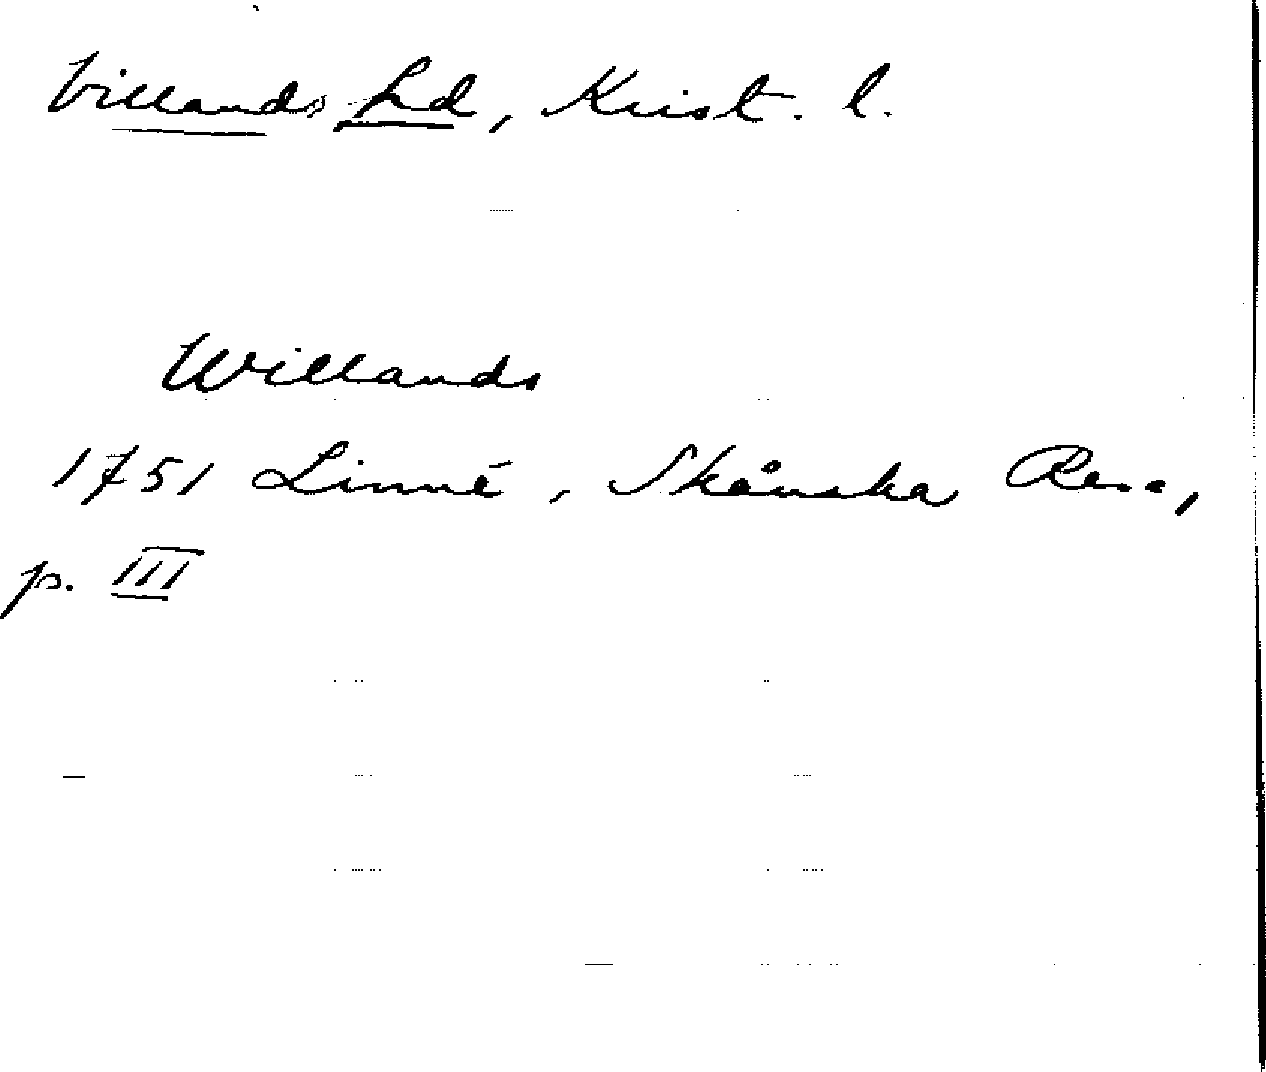 Villands hd, Krist. l.
Willands
1751 Linné, Skånska Resa,
p. III